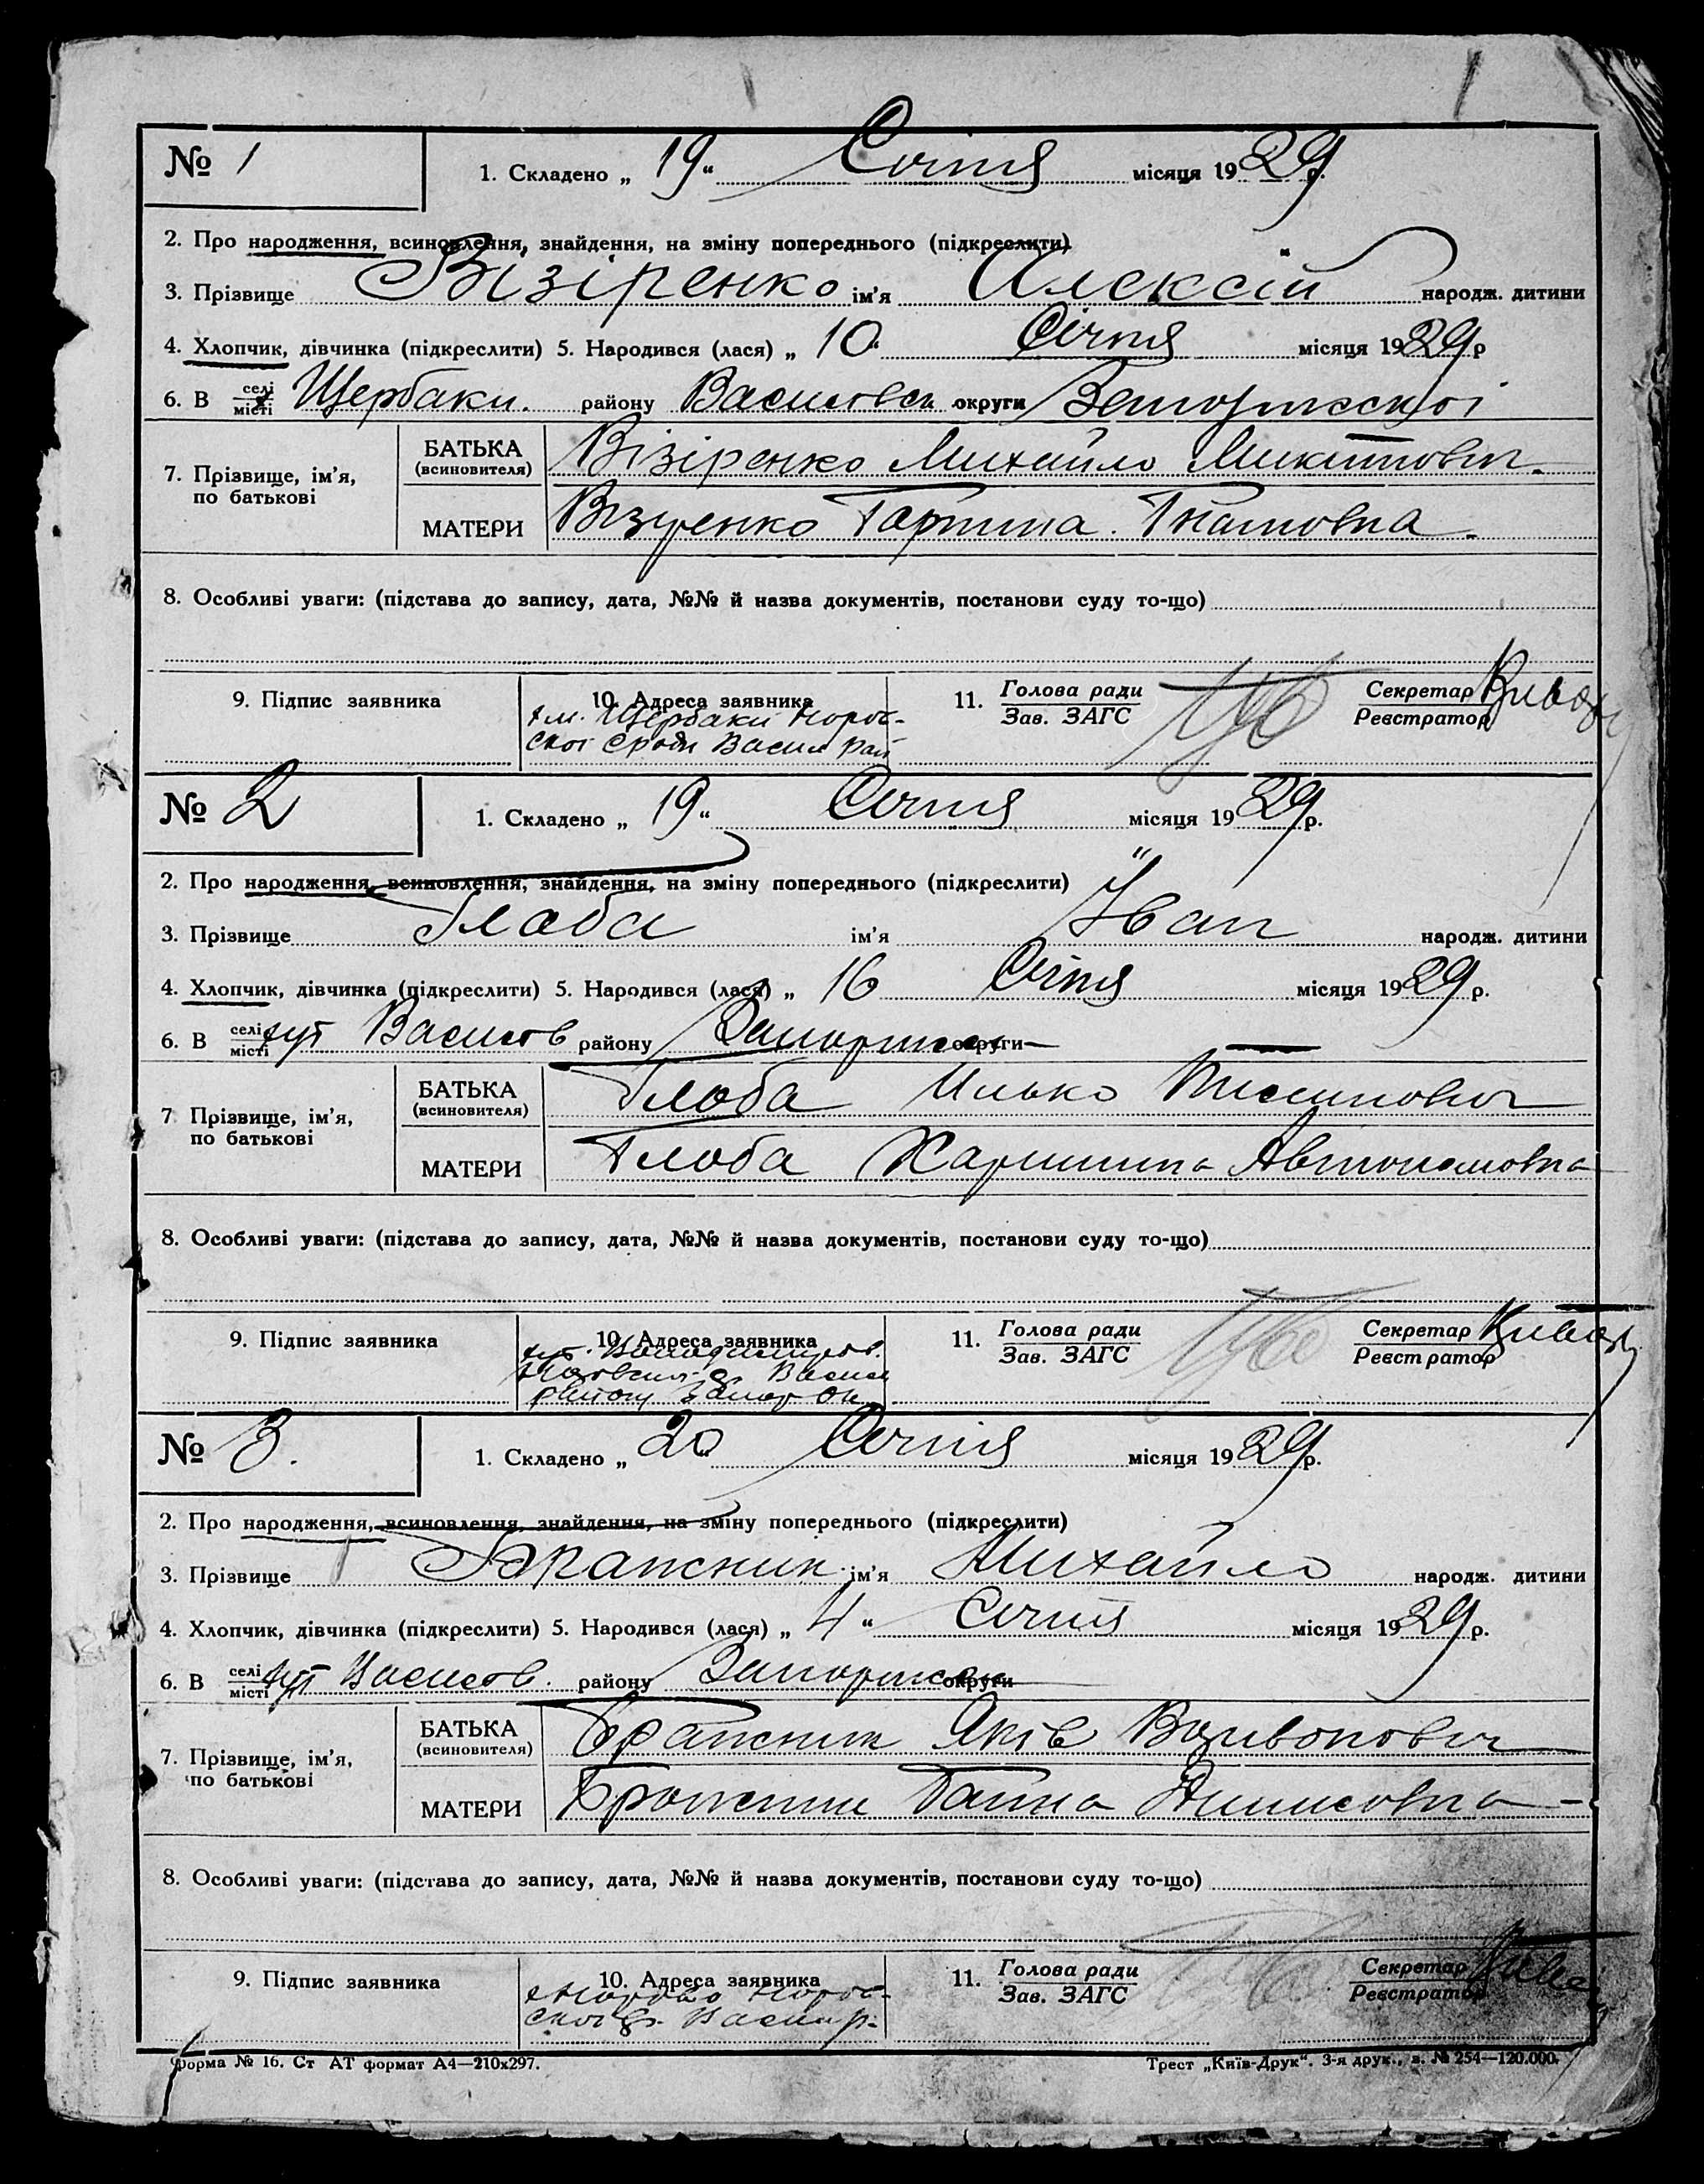 № 1
1. Складено „ 19 “ Січня місяця 1929 р.
2. Про народження, всиновлення, знайдення, на зміну попереднього (підкреслити)
3. Прізвище Візіренко ім'я Алексій народж. дитини
4. Хлопчик, дівчинка (підкреслити) 5. Народився (лася) „ 10 “ Січня місяця 1929 р
6. В селі місті Щербаки. району Василовск округи
7. Прізвище, ім'я, по батькові
БАТЬКА (всиновителя) Візіренко Михайло Микитович.
МАТЕРИ Візіренко Гарпина. Гнатовна.
8. Особливі уваги: (підстава до запису, дата, №№ й назва документів, постанови суду то-що)
9. Підпис заявника
10. Адреса заявника
Щербаки
Васил рай
11. Голова ради
Зав. ЗАГС
Секретар
Реєстратор
№ 2
1. Складено „ 19 “ Січня місяця 1929 р.
2. Про народження, всиновлення, знайдення, на зміну попереднього (підкреслити)
3. Прізвище Глоба ім'я Іван народж. дитини
4. Хлопчик, дівчинка (підкреслити) 5. Народився (лася) „ 16 Січня місяця 1929 р.
6. В селі місті хут Василов району Запоріжск округи
7 Прізвище, ім'я, по батькові
БАТЬКА (всиновителя) Глоба Илько
МАТЕРИ Глоба Автономовна
8. Особливі уваги: (підстава до запису, дата, №№ й назва документів, постанови суду то-що)
9. Підпис заявника
10. Адреса заявника
хут.
Васил
району Запор Ок
11. Голова ради
Зав. ЗАГС
Секретар
Реєстратор
№ 3.
1. Складено „ 20 “ Січня місяця 1929 р.
2. Про народження, всиновлення, знайдення, на зміну попереднього (підкреслити)
3. Прізвище Бражник ім'я Михайло народж. дитини
4. Хлопчик, дівчинка (підкреслити) 5. Народився (лася) „ 4 “ Січня місяця 1929 р.
6. В селі місті хут Василов. району Запоріжск округи
7. Прізвище, ім'я, по батькові
БАТЬКА (всиновителя) Бражник Яків
МАТЕРИ Бражник Ганна
8. Особливі уваги: (підстава до запису, дата, №№ й назва документів, постанови суду то-що)
9. Підпис заявника
10. Адреса заявника
Васил р.
11. Голова ради
Зав. ЗАГС
Секретар
Реєстратор
Форма № 16. Ст АТ формат А4—210х297.
Трест „Київ-Друк“. 3-я друк., з. № 254—120.000.